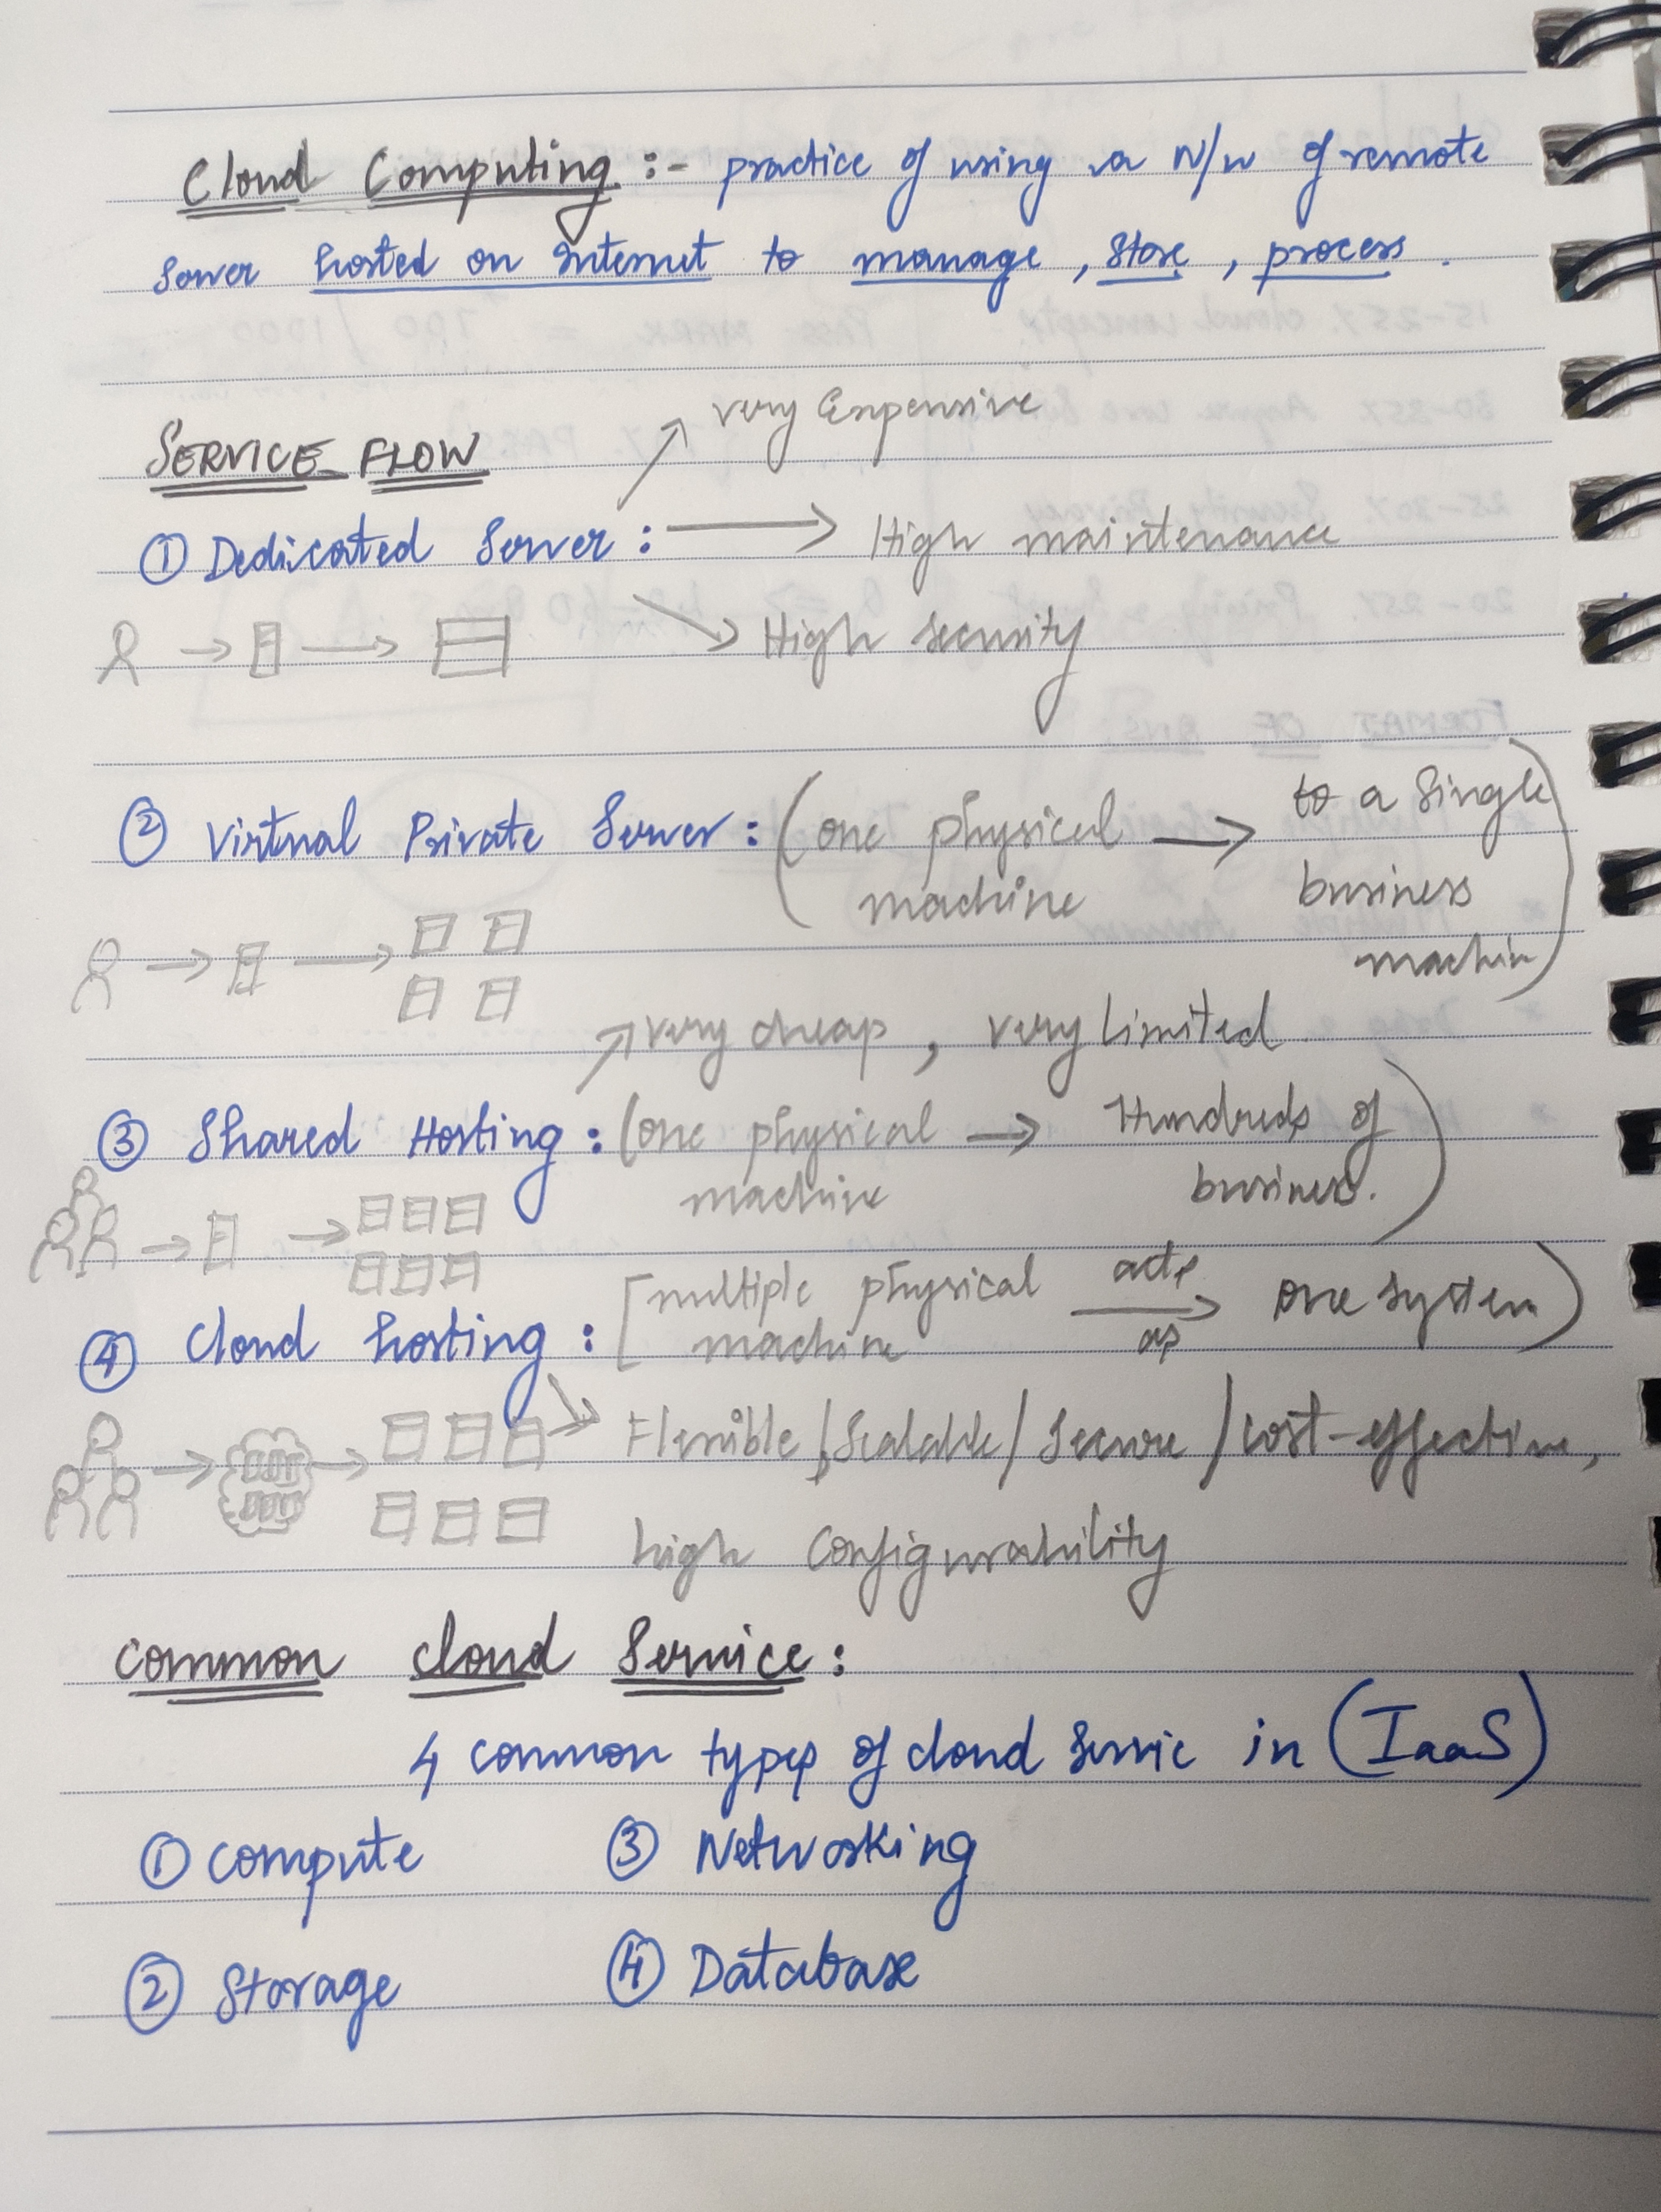 Cloud Computing :- practice of using a N/w of remote
server hosted on Internet to manage, store, process.
SERVICE FLOW
very Expensive
① Dedicated Server : → High maintenance
High security
② Virtual Private Server : (one physical machine → to a single business machin)
very cheap, very limited
③ Shared Hosting : (one physical machine → Hundreds of business.)
④ Cloud hosting : [multiple physical machine acts as → one system)
Flexible / Scalable / Secure / cost-effective,
high configurability
common cloud Service :
4 common types of cloud servic in (IaaS)
① compute ③ Networking
② Storage ④ Database